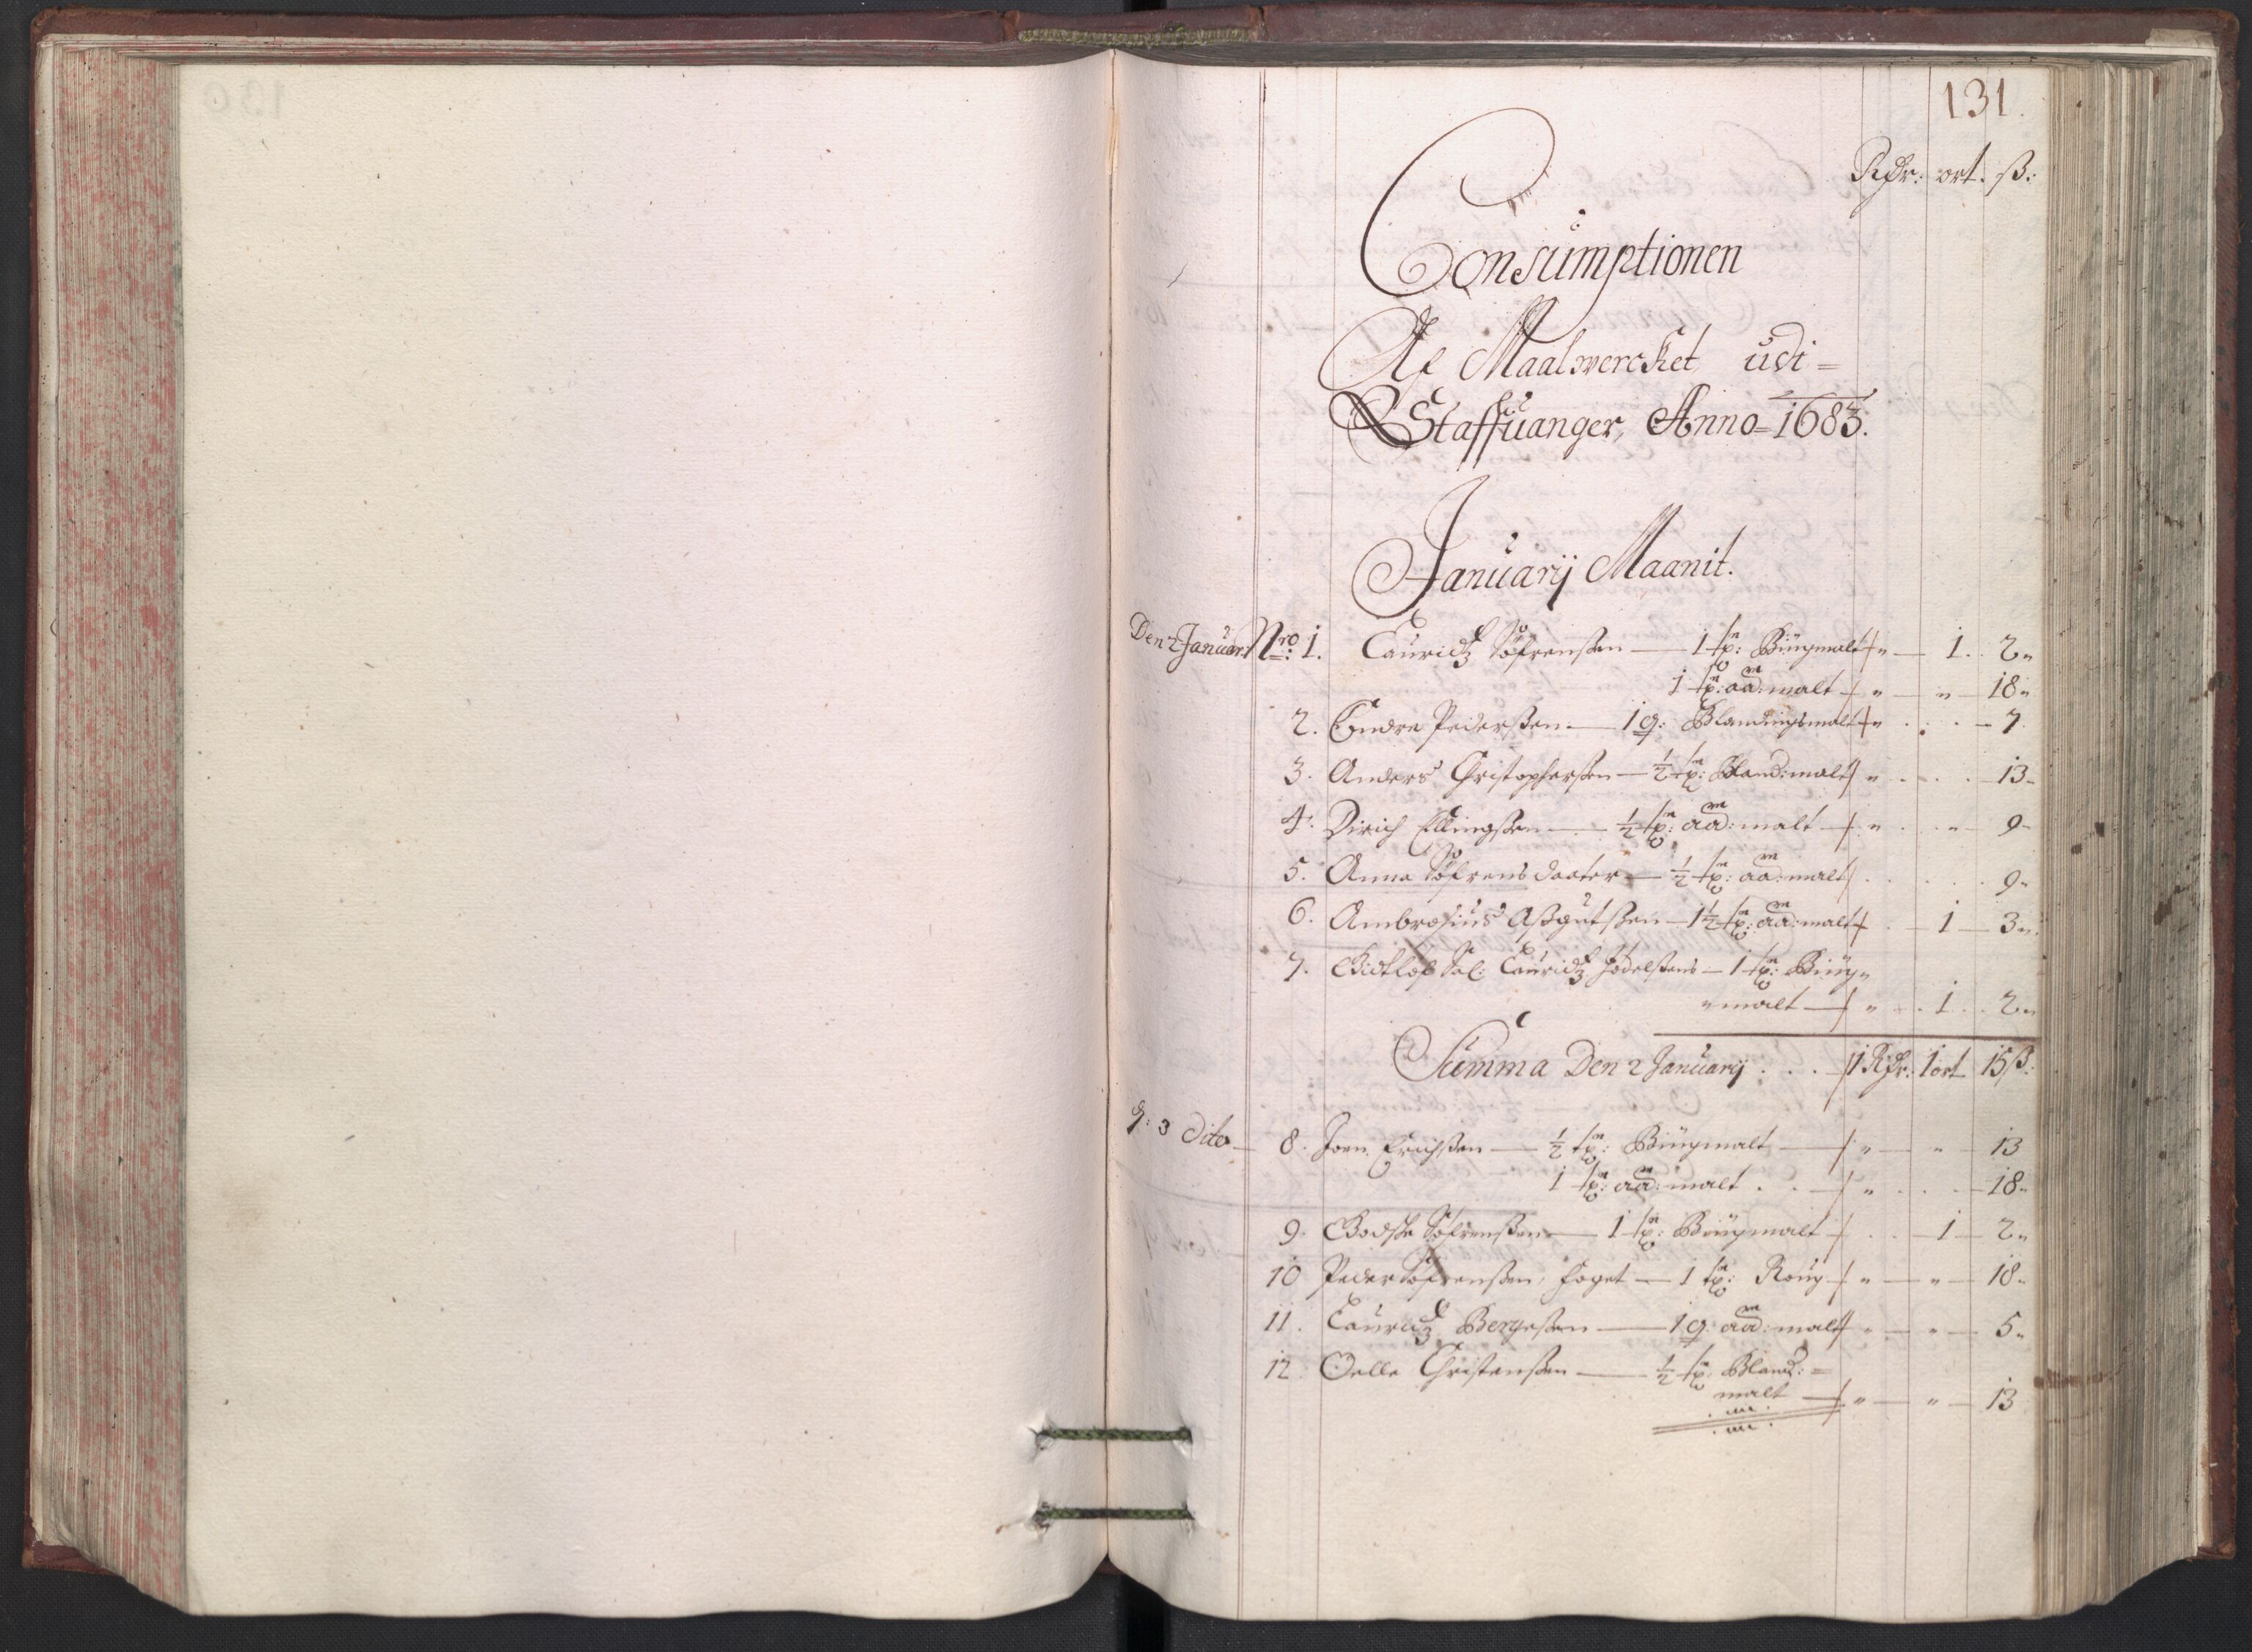 131.
Rdr: ort. ß:
Consumptionen
Af Maalwercket udi =
Staffuanger, Anno = 1683.
Januarij Maanit.
Den 2 Januar: Nro: 1. Lauridtz Søfrenßen — 1 tp: Biugmalt " — 1. 2"
1 tp: aad: malt " " 18"
2. Endre Pederßen — 1 q: Blandingsmalt " 7
3. Anders Christopherßen — ½ tp: Bland: malt " 13
4. Dirich Ellingßen — ½ tp: aad: malt " " 9
5. Anna Søfrensdaater — ½ tp: aad: malt 9"
6. Ambrosius Aßgutßen — 1½ tp: aad: malt 1 3"
7. Sal: Lauridtz — 1 tp: Biug"
"malt " 1 2"
Summa Den 2 Januarij . . . 1 Rdr: 1 ort 15 ß:
d: 3 Dito — 8. Joen Erichßen — ½ tp: Biugmalt " " 13
1 tp: aad: malt . . " 18"
9. Søfrenßen — 1 tp: Biugmalt 1 2"
10 Peder Søfrenßen, foget — 1 tp: Roug " " 18"
11. Lauridtz Bergeßen — 1 q: aad: malt " " 5"
12. Oelle Christenßen — ½ tp: Bland: =
malt " " 13